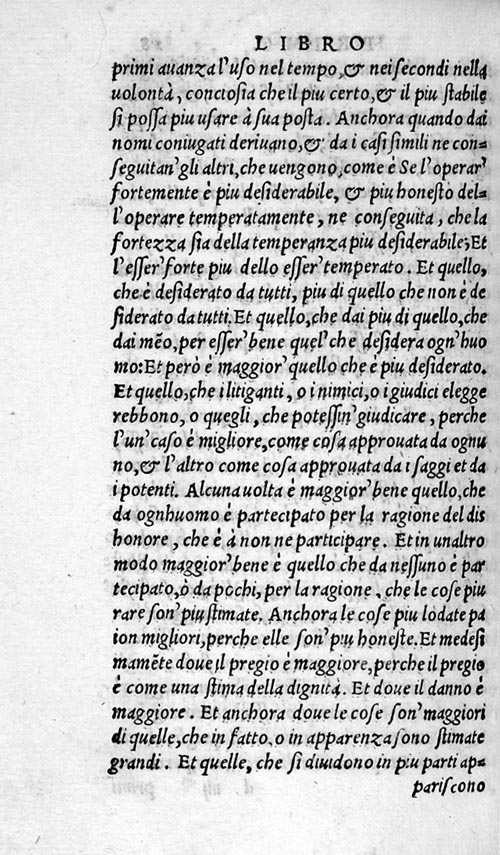 LIBRO
primi auanza l'uso nel tempo, & nei secondi nella
uolontà, conciosia che il piu certo, & il piu stabile
si possa piu usare à sua posta. Anchora quando dai
nomi coniugati deriuano, & da i casi simili ne con=
seguitan' gli altri, che uengono, come é Se l'operar'
fortemente é piu desiderabile, & piu honesto del=
l'operare temperatamente, ne conseguita, che la
fortezza sia della temperanza piu desiderabile; Et
l'esser' forte piu dello esser' temperato. Et quello,
che é desiderato da tutti, piu di quello che non é de
siderato da tutti. Et quello, che dai piu di quello, che
dai mẽo, per esser' bene quel' che desidera ogn'huo
mo: Et però é maggior' quello che é piu desiderato.
Et quello, che i litiganti, o i nimici, o i giudici elegge
rebbono, o quegli, che potessin' giudicare, perche
l'un' caso é migliore, come cosa approuata da ognu
no, & l'altro come cosa approuata da i saggi et da
i potenti. Alcuna uolta é maggior' bene quello, che
da ognhuomo é partecipato per la ragione del dis
honore, che é à non ne participare. Et in un altro
modo maggior' bene é quello che da nessuno é par
tecipato, ò da pochi, per la ragione, che le cose piu
rare son' piu stimate. Anchora le cose piu lodate pa
ion migliori, perche elle son' piu honeste. Et medesi
mamẽte doue il pregio é maggiore, perche il pregio
é come una stima della dignità. Et doue il danno é
maggiore. Et anchora doue le cose son' maggiori
di quelle, che in fatto, o in apparenza sono stimate
grandi. Et quelle, che si diuidono in piu parti ap=
pariscono